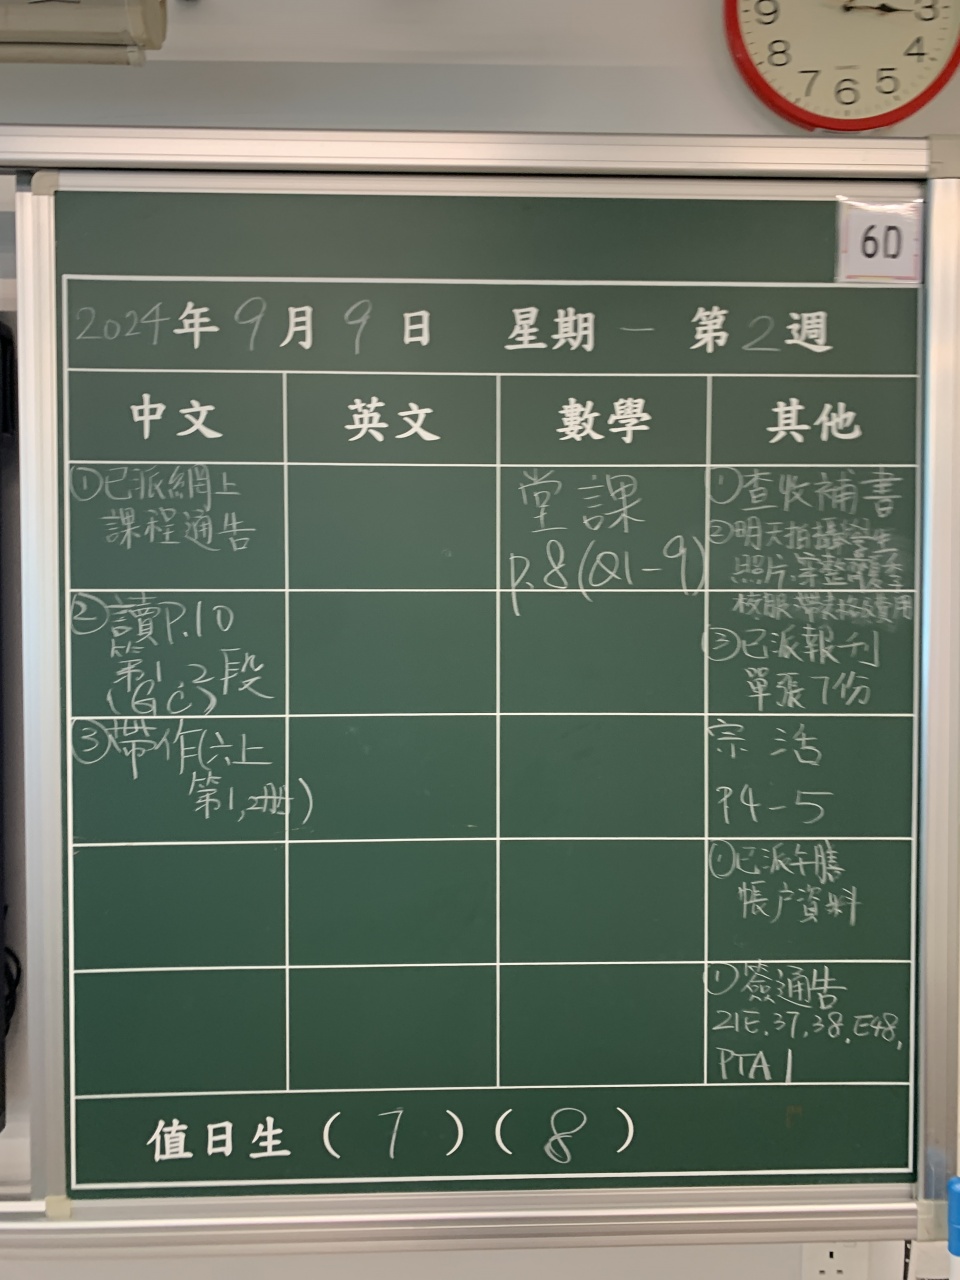 9
3
8
4
7
6
5
6D
2024年9月9日 星期一 第2週
中文 英文 數學 其他
①已派網上
課程通告
②讀P.10
第1,2段
(GC)
③帶作(六上
第1,2冊)
堂課
p.8(Q1-9)
①查收補書
②明天拍攝學生
照片,穿整齊夏季
校服,帶表格及費用
③已派報刊
單張7份
宗活
P4-5
①已派午膳
帳户資料
①簽通告
21E,37,38,E48,
PTA1
值日生(7)(8)